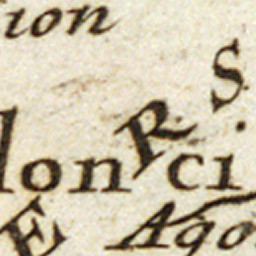 ion
S.
R
lon ci
E
Ago